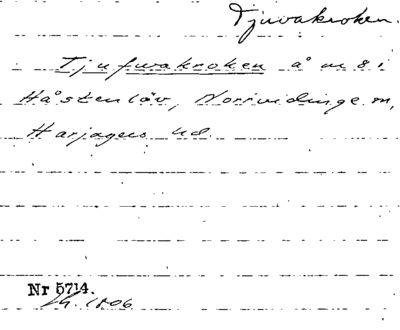 Tjuvakroken.
Tjufvakroken å n:o 8 i
Håstenlöv, Norrvidinge sn,
Harjagers hd.
Nr 5714.
1806